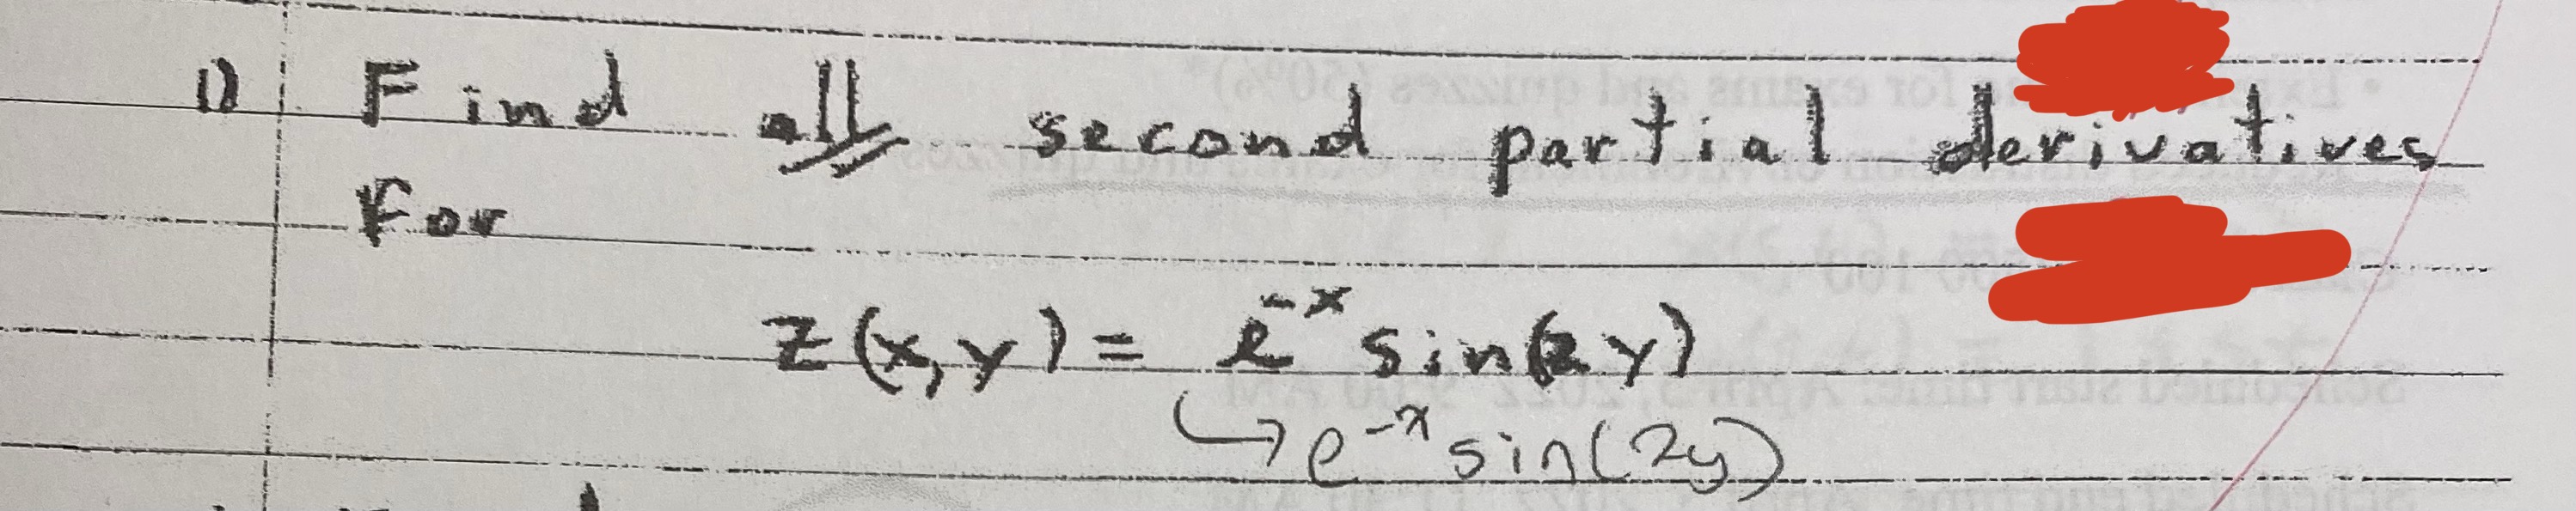 1) Find all second partial derivatives
For
z(x,y) = e^-x sin(2y)
↳ e^-x sin(2y)